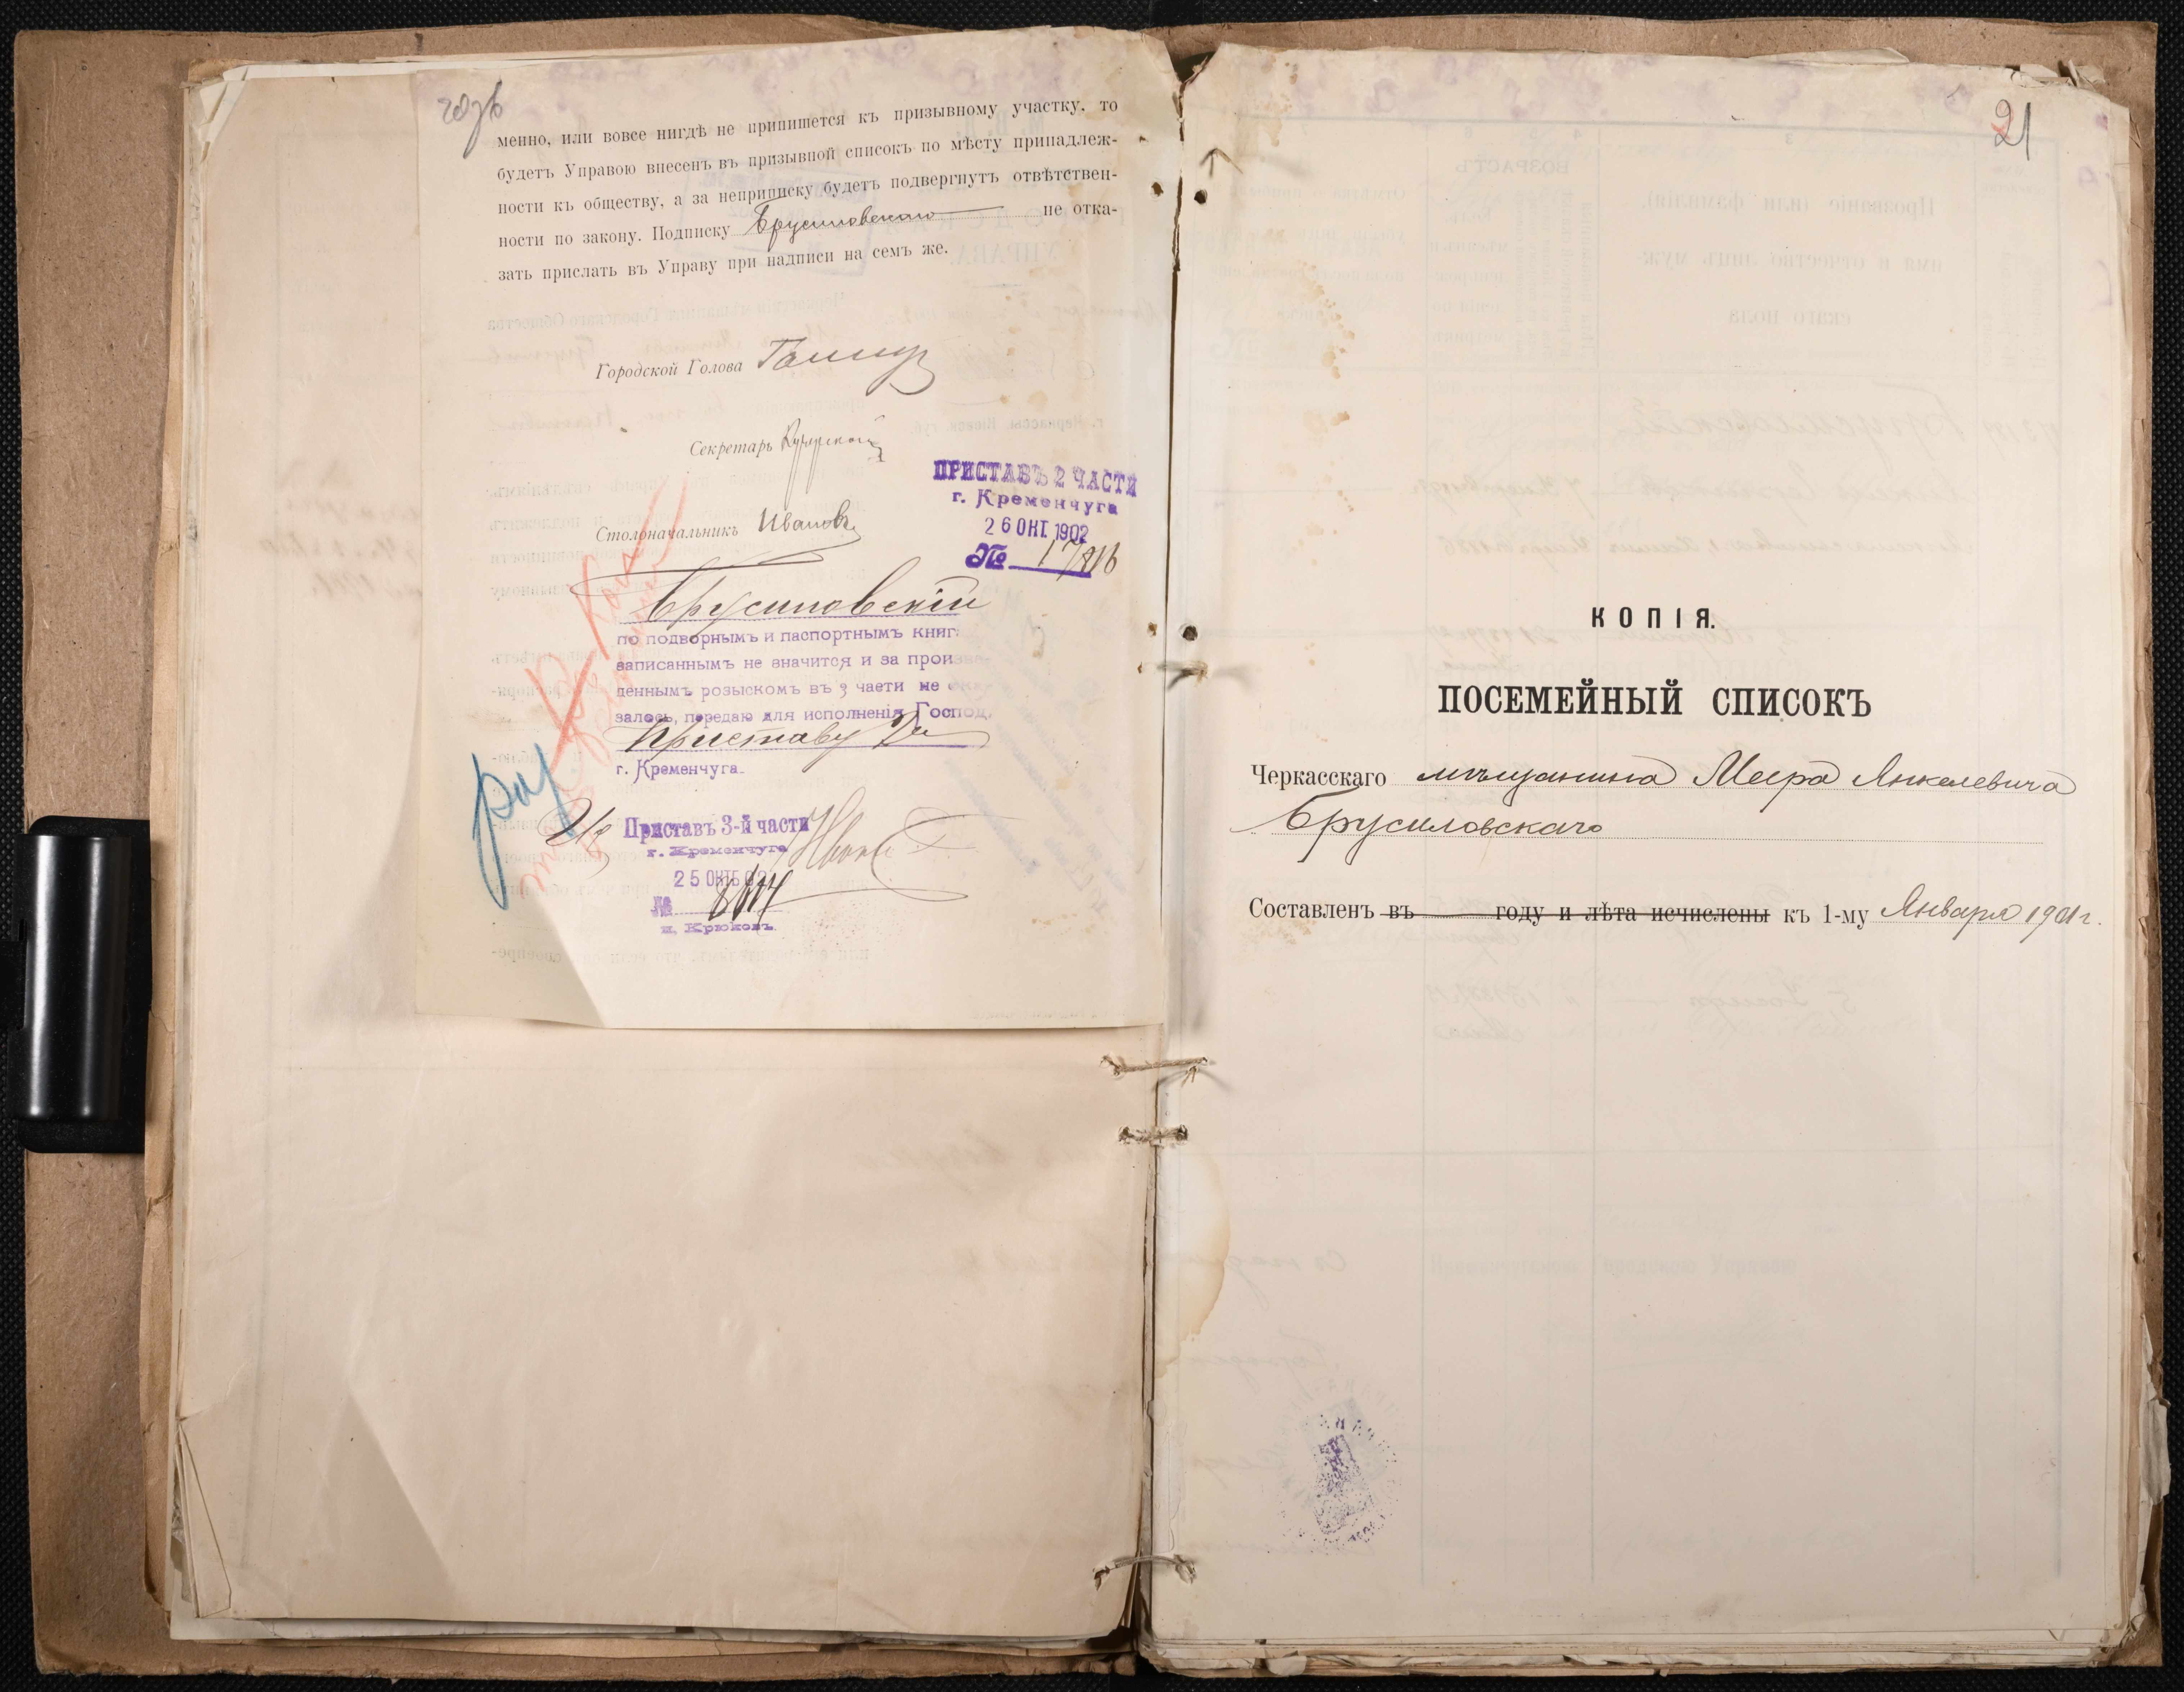 менно, или вовсе нигдѣ не припишется къ призывному участку, то
будетъ Управою внесенъ въ призывной списокъ по мѣсту принадлеж-
ности къ обществу, а за неприписку будетъ подвергнутъ отвѣтствен-
ности по закону. Подписку Брусиловскаго не отка-
зать прислать въ Управу при надписи на семъ же.
Городской Голова
Секретарь
Столоначальникъ Ивановъ
ПРИСТАВЪ 2 ЧАСТИ
г. Кременчуга
26 ОКТ. 1902
№
Брусиловскій
по подворнымъ и паспортнымъ книг
записаннымъ не значится и за произве-
деннымъ розыскомъ въ 3 части не ока-
залось, передаю для исполненія Господ.
Приставу 2й
г. Кременчуга
Приставъ 3-й части
г. Кременчуга
25 ОКТЬ 02
№
п. Крюковъ
21
КОПІЯ.
ПОСЕМЕЙНЫЙ СПИСОКЪ
Черкасскаго мѣщанина Меера Янкелевича
Брусиловскаго
Составленъ въ году и лѣта исчислены къ 1-му Января 1901 г.